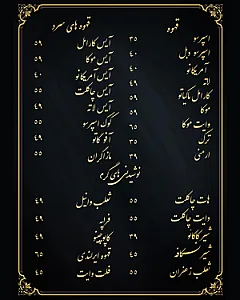 قهوه
اسپرسو ۳۵
اسپرسو دبل ۴۰
آمریکانو ۴۰
لاته ۴۹
کارامل ماکیاتو ۵۹
موکا ۵۹
وایت موکا ۶۰
ترک ۳۵
ارمنی ۳۰
قهوه های سرد
آیس کارامل ۵۹
آیس موکا ۵۹
آیس آمریکانو ۴۰
آیس چاکلت ۵۵
آیس لاته ۴۹
کوک اسپرسو ۵۵
آفوگاتو ۴۹
مازاگران ۵۵
نوشیدنی های گرم
هات چاکلت ۵۵
وایت چاکلت ۵۵
شیر کاکائو ۳۹
شیر نسکافه ۴۵
ثعلب زعفران ۵۵
ثعلب وانیل ۴۹
فراپه ۴۹
کاپوچینو ۴۹
قهوه ایرلندی ۶۵
فلت وایت ۴۵